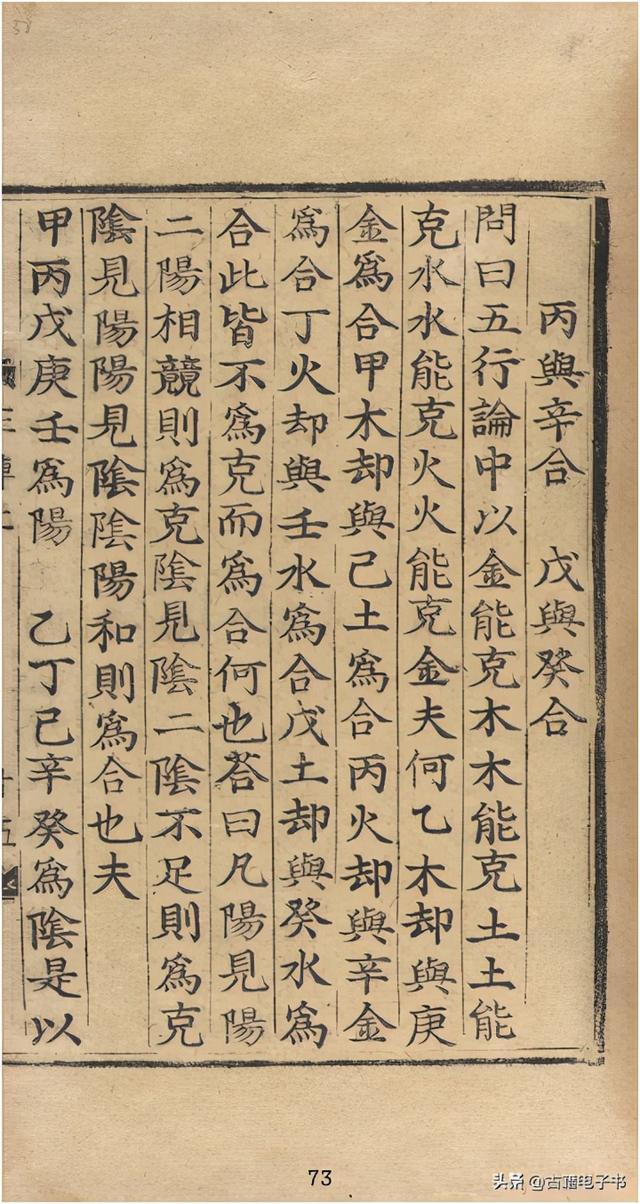 丙與辛合　戊與癸合
問曰五行論中以金能克木木能克土土能
克水水能克火火能克金夫何乙木却與庚
金爲合甲木却與己土爲合丙火却與辛金
爲合丁火却與壬水爲合戊土却與癸水爲
合此皆不爲克而爲合何也荅曰凡陽見陽
二陽相競則爲克陰見陰二陰不足則爲克
陰見陽陽見陰陰陽和則爲合也夫
甲丙戊庚壬爲陽　乙丁己辛癸爲陰是以
73
头条@古籍电子书